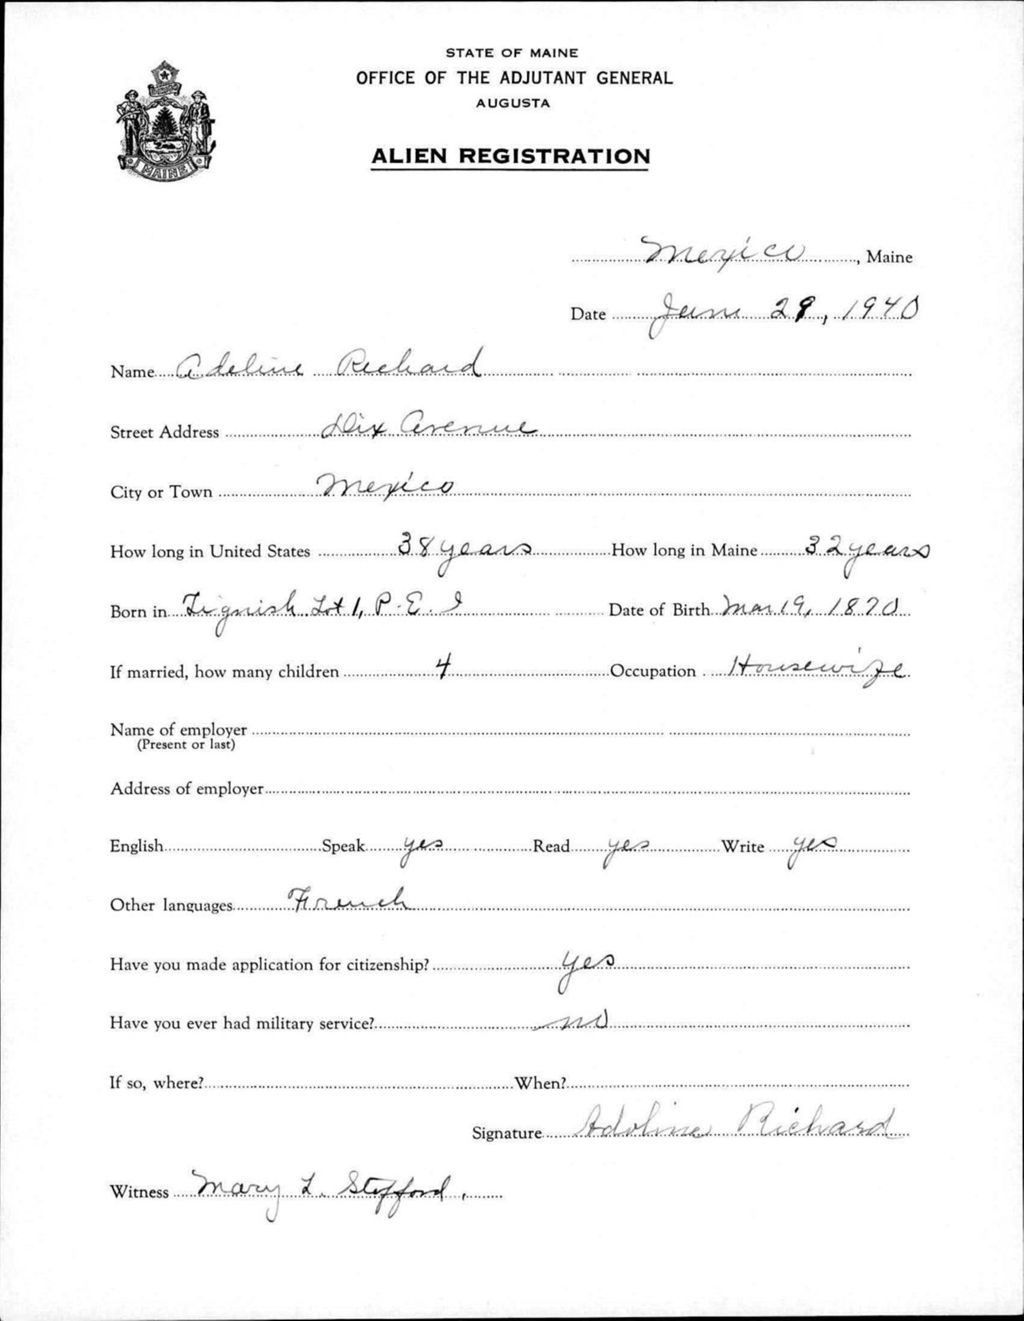 STATE OF MAINE
OFFICE OF THE ADJUTANT GENERAL
AUGUSTA
ALIEN REGISTRATION
MAINE
Mexico, Maine
Date June 29, 1940
Name Adeline Richard
Street Address Dix Avenue
City or Town Mexico
How long in United States 38 years How long in Maine 32 years
Born in Tignish Lot 1, P.E.I Date of Birth Mar 19, 1870
If married, how many children 4 Occupation Housewife
Name of employer
(Present or last)
Address of employer
English Speak yes Read yes Write yes
Other languages French
Have you made application for citizenship? yes
Have you ever had military service? no
If so, where? When?
Signature Adoline Richard
Witness Mary L. Stofford.